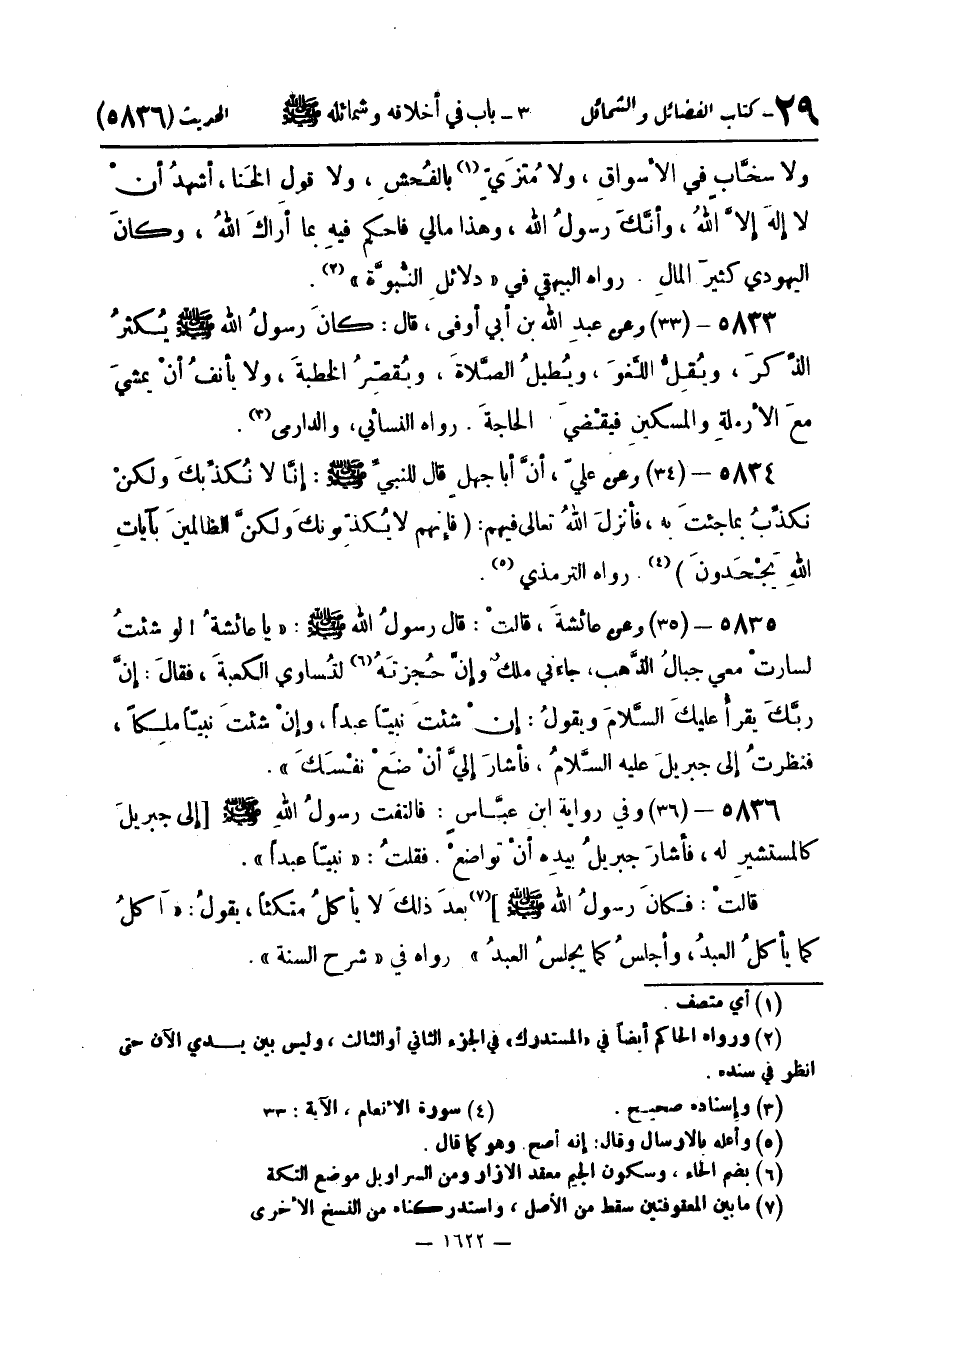 ٢٩- كتاب الفضائل والشمائل ٣- باب في أخلاقه وشمائله ﷺ الحديث (٥٨٣٦)
ولا سخَّابٍ في الأسواقِ، ولا مُتزَيٍّ(١) بالفُحشِ، ولا قول الخنا، أشهدُ أنْ
لا إلهَ إلاَّ اللهُ، وأنَّكَ رسولُ الله، وهذا مالي فاحكم فيهِ بما أراكَ اللهُ، وكانَ
اليهودي كثيرَ المالِ. رواه البيهقي في «دلائلِ النُّبوَّة»(٢).
٥٨٣٣ - (٣٣) وعن عبدِ الله بن أبي أوفى، قال: كانَ رسولُ الله ﷺ يُكثرُ
الذِّكرَ، ويُقِلُّ اللَّغوَ، ويُطيلُ الصَّلاةَ، ويُقصِّرُ الخطبةَ، ولا يأنفُ أنْ يمشيَ
معَ الأرملةِ والمسكينِ فيقضيَ الحاجةَ. رواه النسائي، والدارمي(٣).
٥٨٣٤ - (٣٤) وعن عليٍّ، أنَّ أبا جهلٍ قال للنبيِّ ﷺ: إنَّا لا نُكذِّبكَ ولكنْ
نكذِّبُ بما جئتَ به، فأنزلَ اللهُ تعالى فيهم: (فإنهم لا يُكذِّبونكَ ولكنَّ الظالمينَ بآياتِ
اللهِ يَجْحَدونَ)(٤). رواه الترمذي(٥).
٥٨٣٥ - (٣٥) وعن عائشةَ، قالتْ: قال رسولُ الله ﷺ: «يا عائشةُ! لو شئتُ
لسارتْ معي جبالُ الذَّهبِ، جاءني ملكٌ وإنَّ حُجزتَهُ(٦) لتُساوي الكعبةَ، فقالَ: إنَّ
ربَّكَ يقرأُ عليكَ السَّلامَ ويقولُ: إنْ شئتَ نبيّاً عبداً، وإنْ شئتَ نبيّاً ملِكاً،
فنظرتُ إلى جبريلَ عليه السَّلامُ، فأشارَ إليَّ أنْ ضَعْ نفْسَكَ».
٥٨٣٦ - (٣٦) وفي رواية ابنِ عبَّاسٍ: فالتفت رسولُ اللهِ ﷺ [إلى جبريلَ
كالمستشيرِ له، فأشارَ جبريلُ بيدِه أنْ تواضعْ. فقلتُ: «نبيّاً عبداً».
قالتْ: فكانَ رسولُ الله ﷺ](٧) بعدَ ذلكَ لا يأكلُ متكئاً، يقولُ: «آكلُ
كما يأكلُ العبدُ، وأجلسُ كما يجلسُ العبدُ» رواه في «شرح السنة».
(١) أي متصف.
(٢) ورواه الحاكم أيضاً في «المستدرك» في الجزء الثاني أو الثالث، وليس بين يدي الآن حتى
انظر في سنده.
(٣) وإسناده صحيح. (٤) سورة الأنعام، الآية: ٣٣
(٥) وأعله بالارسال وقال: إنه أصح. وهو كما قال.
(٦) بضم الحاء، وسكون الجيم معقد الازار ومن السراويل موضع التكة
(٧) ما بين المعقوفتين سقط من الأصل، واستدركناه من النسخ الأخرى
— ١٦٢٢ —